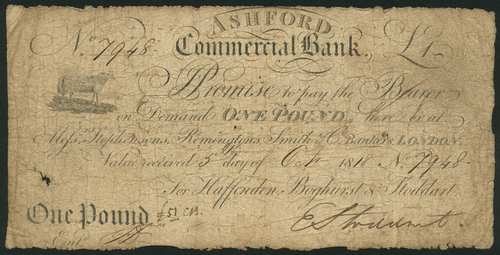 ASHFORD
No. 7948 Commercial Bank. £1
I Promise to pay the Bearer
on Demand ONE POUND, here or at
Messrs. Stephensons, Remingtons, Smith & Co. Bankers, LONDON.
Value received 5 day of Oct 1818 No 7948
For Haffenden, Boghurst & Stoddart
One Pound
Entd.
E Stoddart